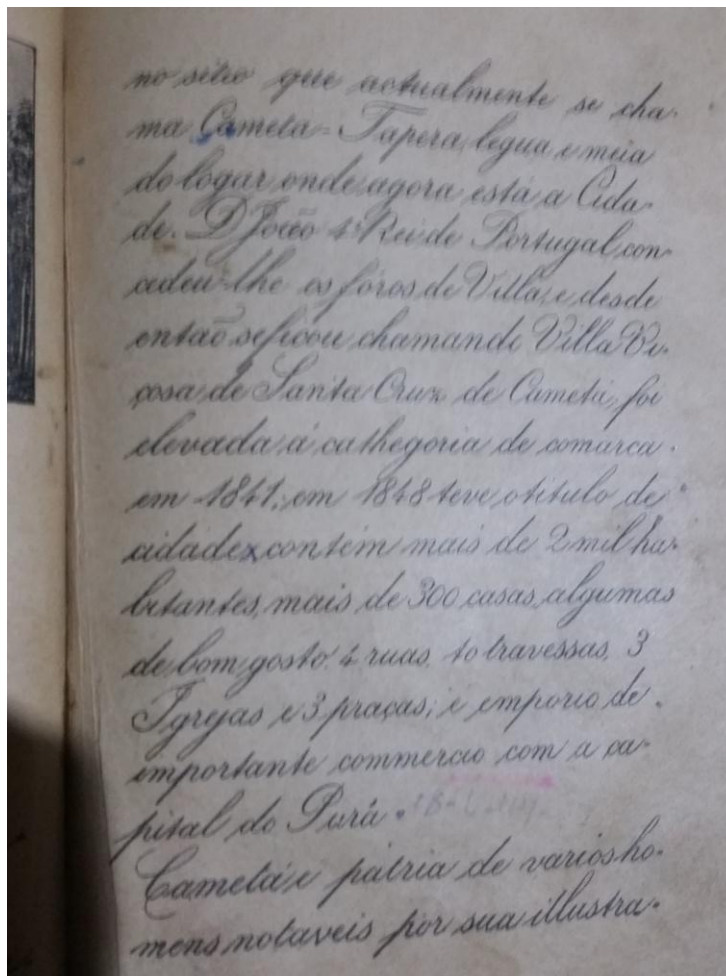 no sitio que actualmente se cha-
ma Cametá-Tapera, legua e meia
do logar onde agora está a Cida-
de. D. João 4º Rei de Portugal con-
cedeu-lhe os fóros de Villa, e desde
então se ficou chamando Villa Vi-
çosa de Santa Cruz de Cametá, foi
elevada á cathegoria de comarca
em 1841; em 1848 teve o titulo de
cidade, contém mais de 2 mil ha-
bitantes, mais de 300 casas, algumas
de bom gosto. 4 ruas, 10 travessas, 3
Igrejas e 3 praças; é emporio de
importante commercio com a ca-
pital do Pará.
Cametá é pátria de varios ho-
mens notaveis por sua illustra-